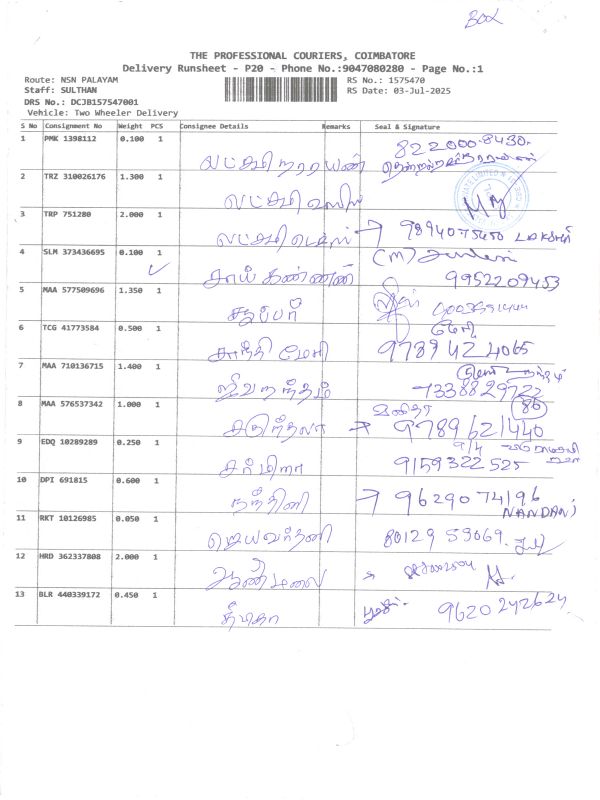 Box
THE PROFESSIONAL COURIERS, COIMBATORE
Delivery Runsheet - P20 - Phone No.:9047080280 - Page No.:1
Route: NSN PALAYAM RS No.: 1575470
Staff: SULTHAN RS Date: 03-Jul-2025
DRS No.: DCJB157547001
Vehicle: Two Wheeler Delivery
S No Consignment No Weight PCS Consignee Details Remarks Seal & Signature
1 PMK 1398112 0.100 1 லட்சுமி நாராயணன் 822000.8430.
2 TRZ 310026176 1.300 1 லட்சுமி
3 TRP 751280 2.000 1 லட்சுமி → 9894075450 LAKSHMI
4 SLM 373436695 0.100 1 சாய் கண்ணன் (M) 9952209453
5 MAA 577509696 1.350 1
6 TCG 41773584 0.500 1 சாந்தி மேரி மேரி 9789424065
7 MAA 710136715 1.400 1 ஜீவானந்தம் 7338829722
8 MAA 576537342 1.000 1 → 9789621440 86
9 EDQ 10289289 0.250 1 சர்மிளா 9/4 9159322525
10 DPI 691815 0.600 1 நந்தினி → 9629074196 NANDANI
11 RKT 10126985 0.050 1 ஜெயவர்தனி 80129 59069.
12 HRD 362337808 2.000 1
13 BLR 440339172 0.450 1 தீபிகா 9620242624